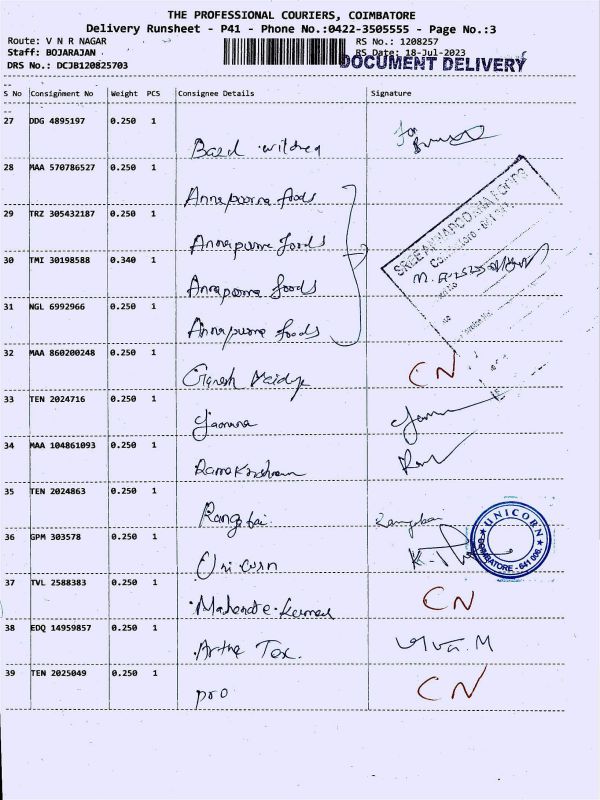 THE PROFESSIONAL COURIERS, COIMBATORE
Delivery Runsheet - P41 - Phone No.:0422-3505555 - Page No.:3
Route: V N R NAGAR RS No.: 1208257
Staff: BOJARAJAN RS Date: 18-Jul-2023
DOCUMENT DELIVERY
DRS No.: DCJB120825703
S No Consignment No Weight PCS Consignee Details Signature
27 DDG 4895197 0.250 1
28 MAA 570786527 0.250 1 Annapoorna foods
29 TRZ 305432187 0.250 1 Annapurna foods
30 TMI 30198588 0.340 1 Annapoorna foods
31 NGL 6992966 0.250 1 Annapurna foods
32 MAA 860200248 0.250 1 Ganesh CN
33 TEN 2024716 0.250 1 Jamuna
34 MAA 104861093 0.250 1 Ramakrishnan
35 TEN 2024863 0.250 1
36 GPM 303578 0.250 1 Unicorn
UNICORN
COIMBATORE - 641 006.
37 TVL 2588383 0.250 1 CN
38 EDQ 14959857 0.250 1 Artha Tex.
39 TEN 2025049 0.250 1 pro CN